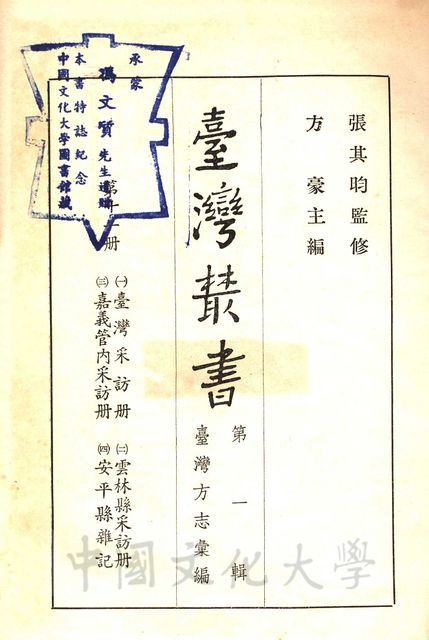 張其昀監修
方豪主編
臺灣叢書
第一輯
臺灣方志彙編
第十一册
㈠臺灣采訪册
㈡雲林縣采訪册
㈢嘉義管內采訪册
㈣安平縣雜記
承蒙
馮文質先生捐贈
本書特誌紀念
中國文化大學圖書館藏
中國文化大學